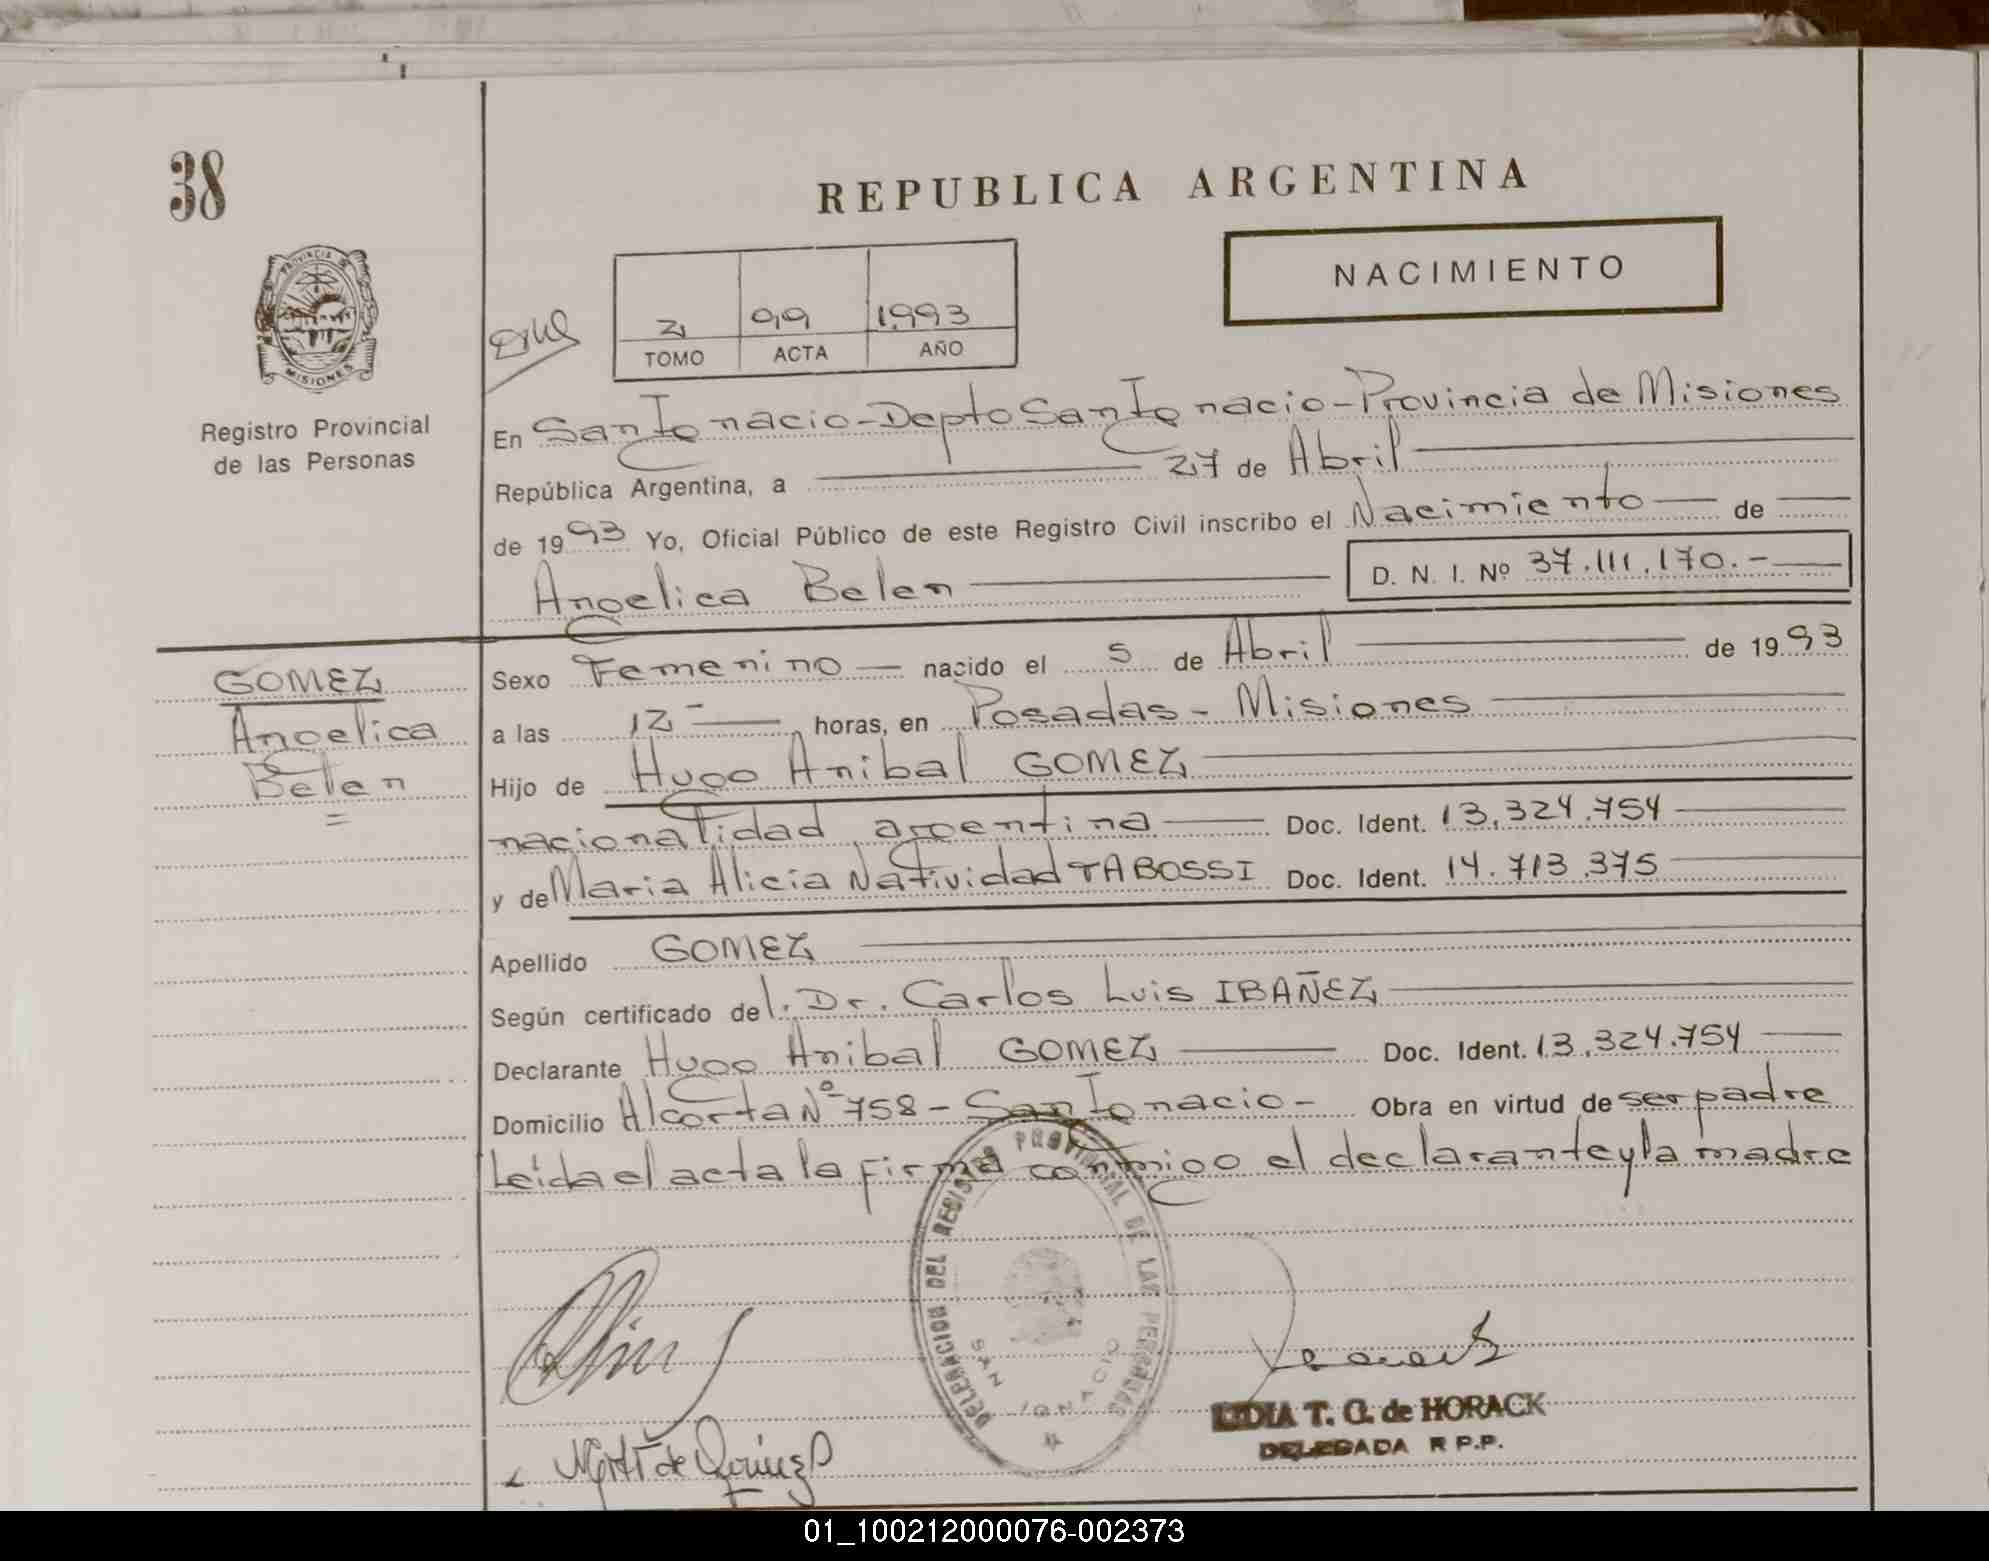 38
REPUBLICA ARGENTINA
NACIMIENTO
2 99 1.993
TOMO ACTA AÑO
PROVINCIA DE MISIONES
Registro Provincial
de las Personas
En San Ignacio-Depto San Ignacio-Provincia de Misiones
República Argentina, a 27 de Abril
de 1993 Yo, Oficial Público de este Registro Civil inscribo el Nacimiento de
Angelica Belen D. N. I. Nº 37.111.170.-
GOMEZ
Angelica
Belen
=
Sexo Femenino nacido el 5 de Abril de 1993
a las 12- horas, en Posadas - Misiones
Hijo de Hugo Anibal GOMEZ
nacionalidad argentina Doc. Ident. 13.324.754
y de Maria Alicia Natividad TABOSSI Doc. Ident. 14.713.375
Apellido GOMEZ
Según certificado del. Dr. Carlos Luis IBAÑEZ
Declarante Hugo Anibal GOMEZ Doc. Ident. 13.324.754
Domicilio Alcorta Nº 758 - San Ignacio - Obra en virtud de ser padre
Leida el acta la firma conmigo el declarante y la madre
DELEGACION DEL REGISTRO PROVINCIAL DE LAS PERSONAS
SAN IGNACIO
LYDIA T. G. de HORACK
DELEGADA R P.P.
01_100212000076-002373